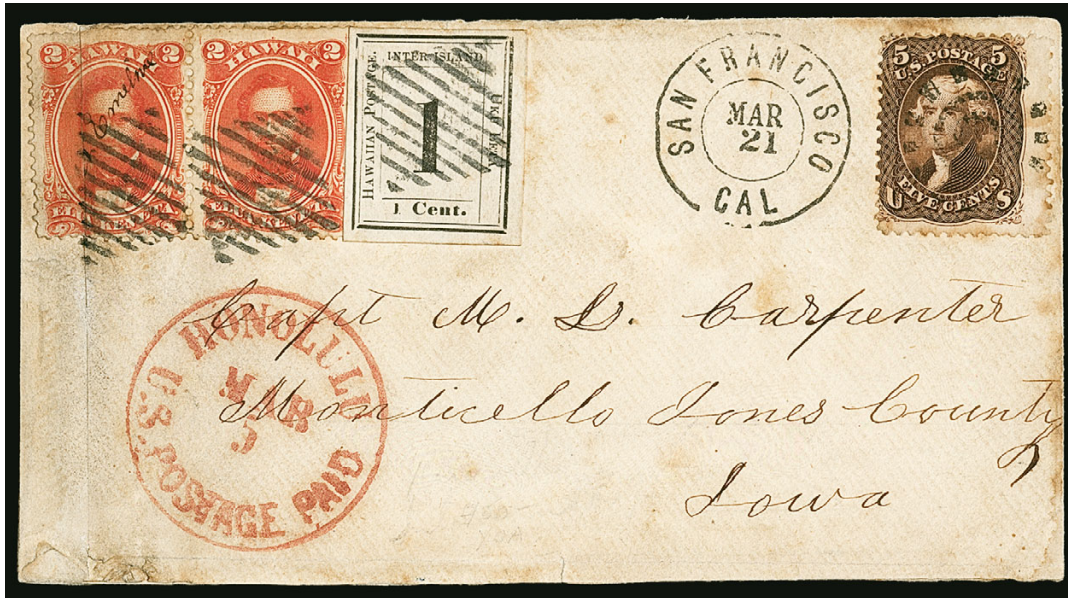 2 HAWAII 2
ELUA KENETA
2 HAWAII 2
ELUA KENETA
INTER ISLAND
HAWAIIAN POSTAGE
1
1 Cent.
SAN FRANCISCO
MAR
21
CAL
5 5
U.S. POSTAGE
FIVE CENTS
U S
HONOLULU
MAR
5
U.S. POSTAGE PAID
Capt M. D. Carpenter
Monticello Jones County
Iowa